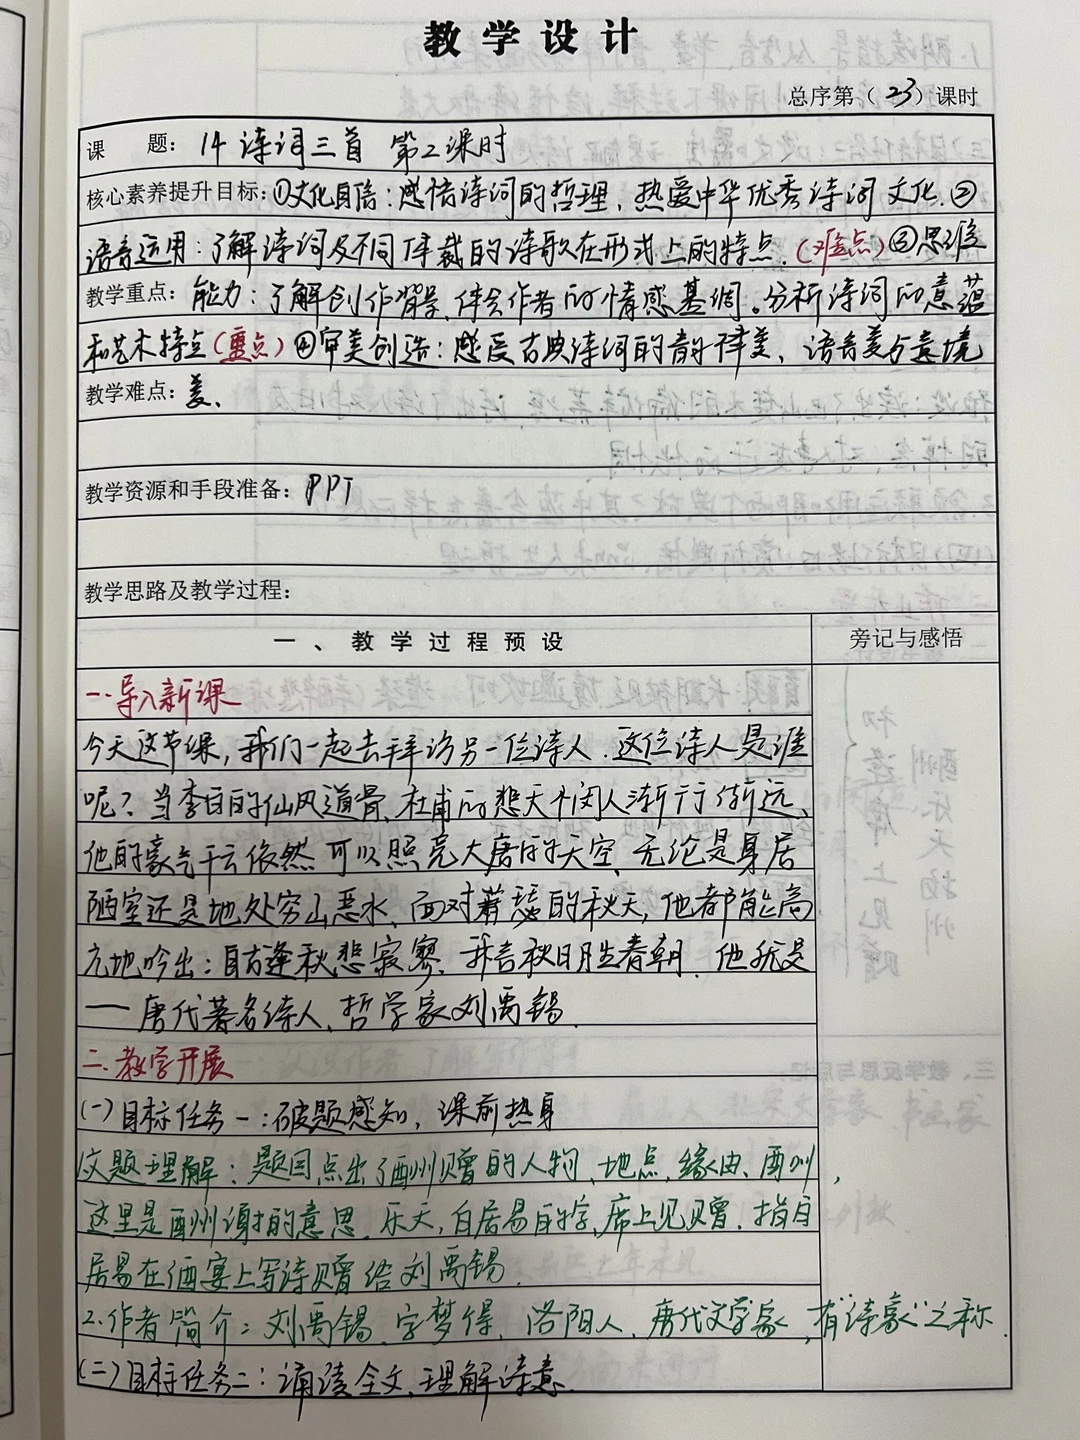 教学设计
总序第(23)课时
课 题: 14 诗词三首 第2课时
核心素养提升目标:①文化自信:感悟诗词的哲理,热爱中华优秀诗词文化.②
语言运用:了解诗词及不同体裁的诗歌在形式上的特点.(难点)③思维
教学重点: 能力:了解创作背景,体会作者的情感基调。分析诗词的意蕴
和艺术特点(重点)④审美创造:感受古典诗词的韵律美、语言美与意境
教学难点: 美、
教学资源和手段准备: PPT
教学思路及教学过程:
一、教学过程预设 旁记与感悟
一.导入新课
今天这节课,我们一起去拜访另一位诗人.这位诗人是谁
呢?当李白的仙风道骨,杜甫的悲天悯人渐行渐远、
他的豪气干云依然可以照亮大唐的天空、无论是身居
陋室还是地处穷山恶水,面对萧瑟的秋天,他都能高
亢地吟出:自古逢秋悲寂寥、我言秋日胜春朝.他就是
——唐代著名诗人,哲学家刘禹锡.
二.教学开展
(一)目标任务一:破题感知,课前热身
1.文题理解:题目点出了酬州赠的人物、地点,缘由、酬州,
这里是酬州谢的意思.乐天,白居易的字,席上见赠.指白
居易在酒宴上写诗赠给刘禹锡.
2.作者简介:刘禹锡.字梦得,洛阳人,唐代文学家,有“诗豪”之称.
(二)目标任务二:诵读全文,理解诗意.